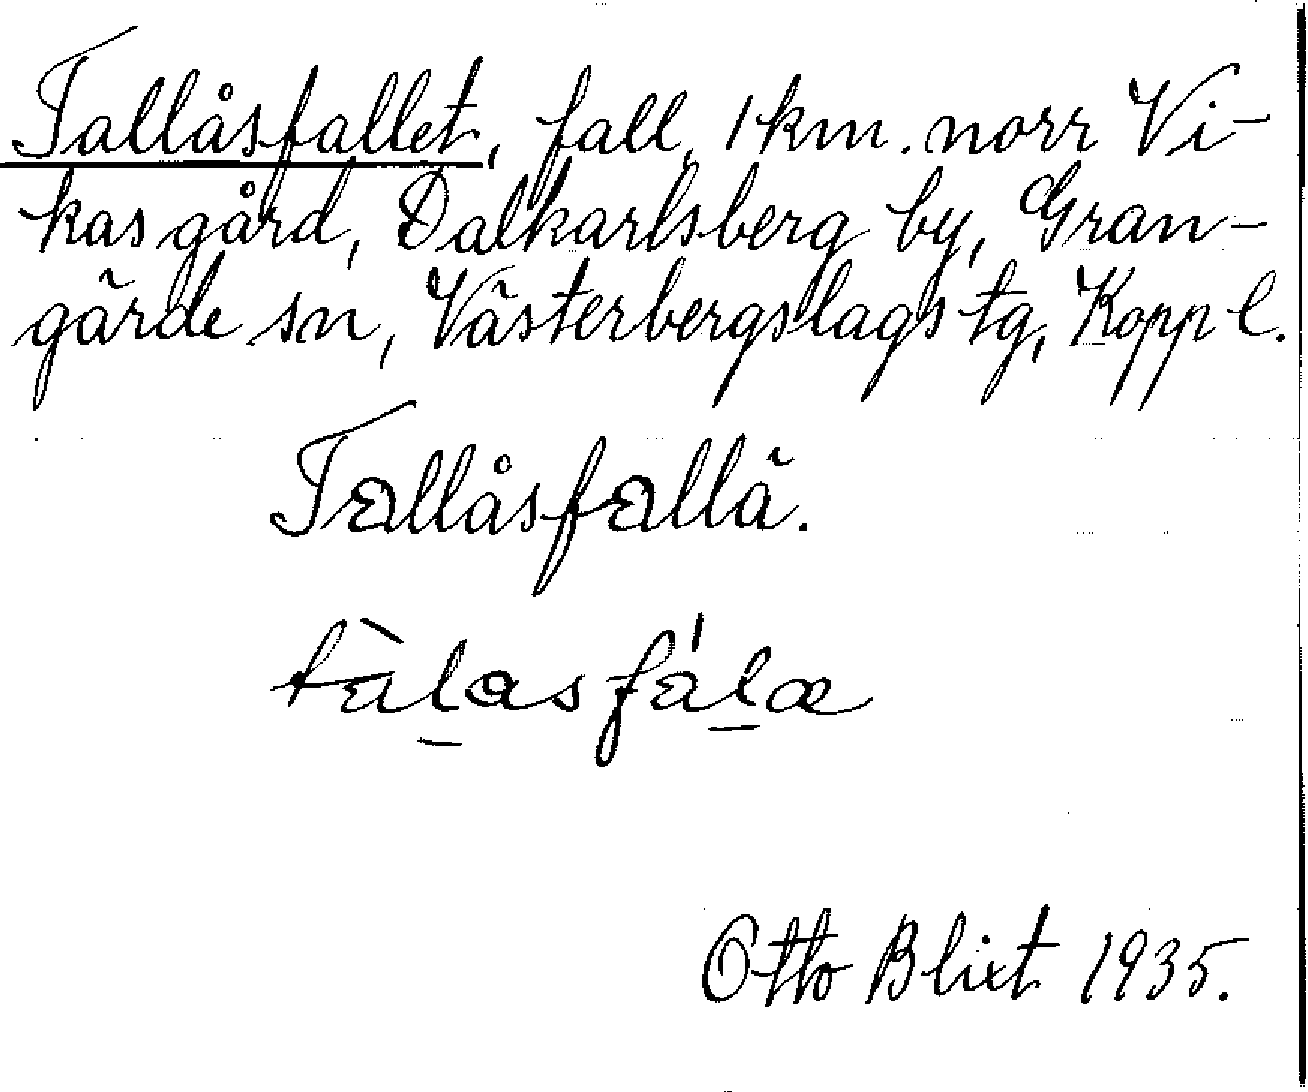 Tallåsfallet, fall, 1 km. norr Vi-
kasgård, Dalkarlsberg by, Gran-
gärde sn, Västerbergslags tg, Kopp l.
Tallåsfallä.
tàl̠asfál̠æ
Otto Blixt 1935.